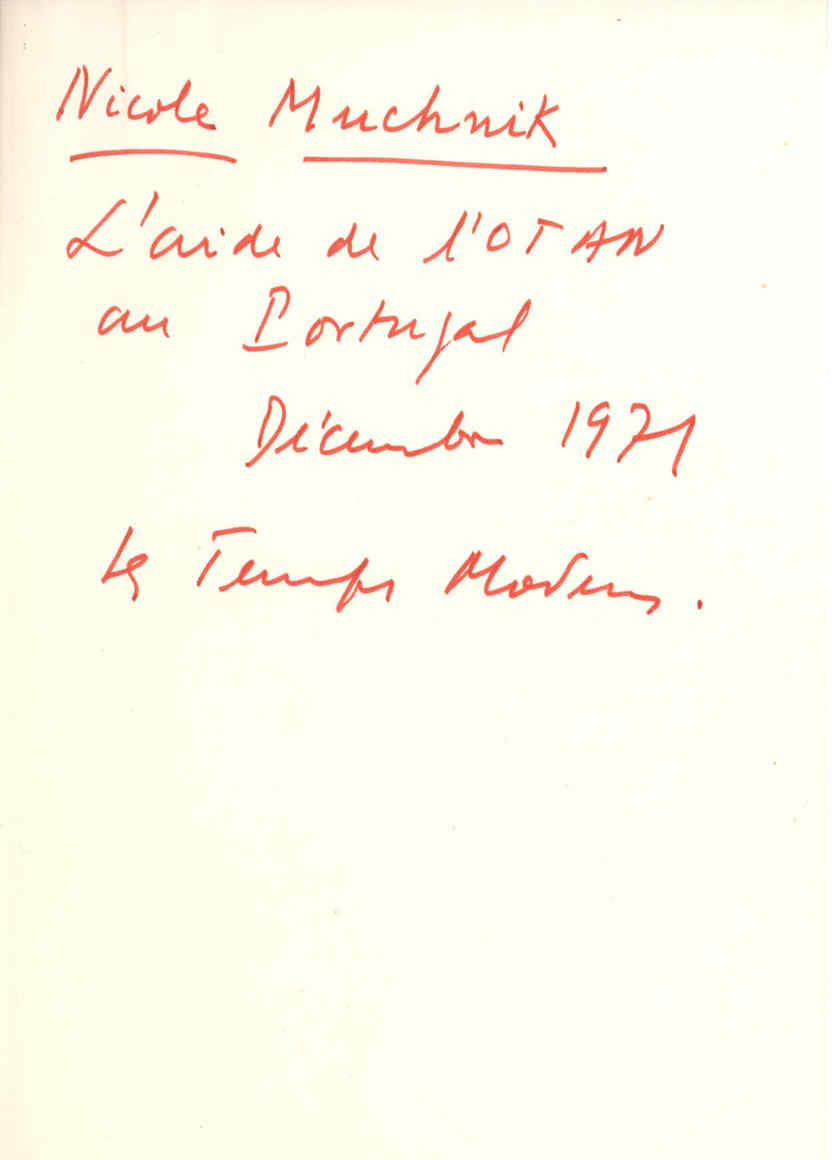 Nicole Muchnik
L'aide de l'OTAN
au Portugal
Décembre 1971
Les Temps Modernes.